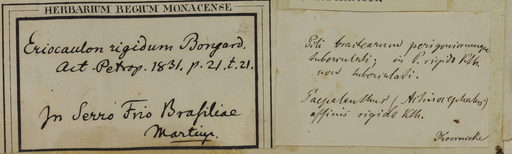 HERBARIUM REGIUM MONACENSE
Eriocaulon rigidum Bongard.
Act. Petrop. 1831. p. 21. t. 21.
In Serro Frio Brasiliae
Martius.
Pili bractearum perigoniorumque
tuberculati; in P. rigido Kth.
non tuberculati.
Paepalanthus (Actinocephalus)
affinis rigido Kth.
Koernicke